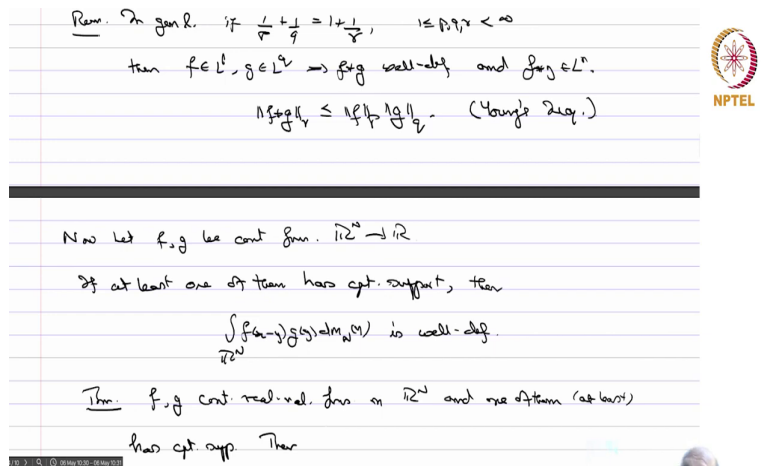 Rem. In genl. if 1/p + 1/q = 1 + 1/r, 1 ≤ p,q,r < ∞
then f ∈ L^p, g ∈ L^q ⇒ f*g well-def and f*g ∈ L^r.
‖f*g‖_r ≤ ‖f‖_p ‖g‖_q. (Young's Ineq.)
NPTEL
Now let f, g be cont fns. ℝ^N → ℝ
If at least one of them has cpt. support, then
∫_{ℝ^N} f(x-y) g(y) dm_N(y) is well-def.
Thm. f, g cont. real-val. fns on ℝ^N and one of them (at least)
has cpt. supp. Then
/10 06 May 10:30 - 06 May 10:31